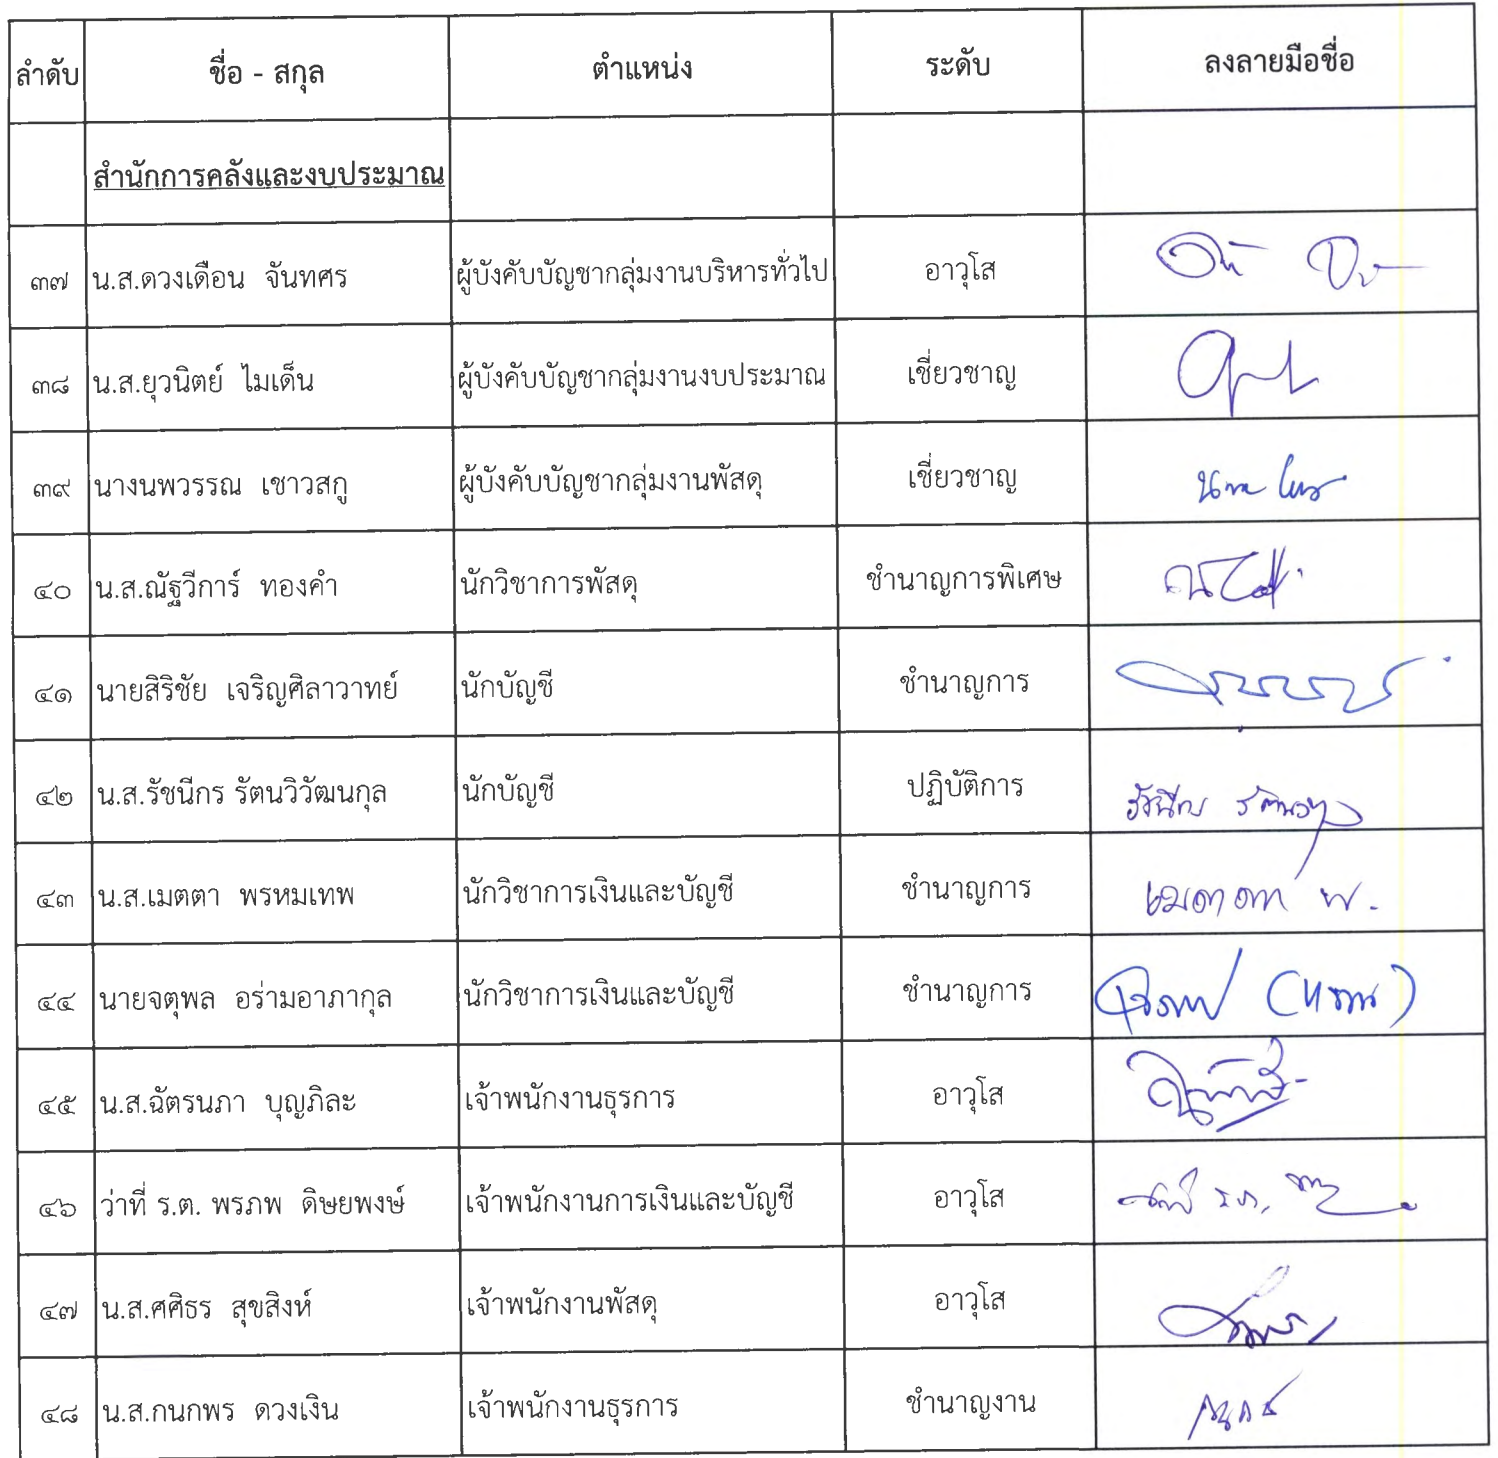 ลำดับ ชื่อ - สกุล ตำแหน่ง ระดับ ลงลายมือชื่อ
สำนักการคลังและงบประมาณ
๓๗ น.ส.ดวงเดือน จันทศร ผู้บังคับบัญชากลุ่มงานบริหารทั่วไป อาวุโส
๓๘ น.ส.ยุวนิตย์ ไมเด็น ผู้บังคับบัญชากลุ่มงานงบประมาณ เชี่ยวชาญ
๓๙ นางนพวรรณ เชาวสกู ผู้บังคับบัญชากลุ่มงานพัสดุ เชี่ยวชาญ
๔๐ น.ส.ณัฐวีการ์ ทองคำ นักวิชาการพัสดุ ชำนาญการพิเศษ
๔๑ นายสิริชัย เจริญศิลาวาทย์ นักบัญชี ชำนาญการ
๔๒ น.ส.รัชนีกร รัตนวิวัฒนกุล นักบัญชี ปฏิบัติการ
๔๓ น.ส.เมตตา พรหมเทพ นักวิชาการเงินและบัญชี ชำนาญการ เมตตา พ.
๔๔ นายจตุพล อร่ามอาภากุล นักวิชาการเงินและบัญชี ชำนาญการ
๔๕ น.ส.ฉัตรนภา บุญภิละ เจ้าพนักงานธุรการ อาวุโส
๔๖ ว่าที่ ร.ต. พรภพ ดิษยพงษ์ เจ้าพนักงานการเงินและบัญชี อาวุโส
๔๗ น.ส.ศศิธร สุขสิงห์ เจ้าพนักงานพัสดุ อาวุโส
๔๘ น.ส.กนกพร ดวงเงิน เจ้าพนักงานธุรการ ชำนาญงาน